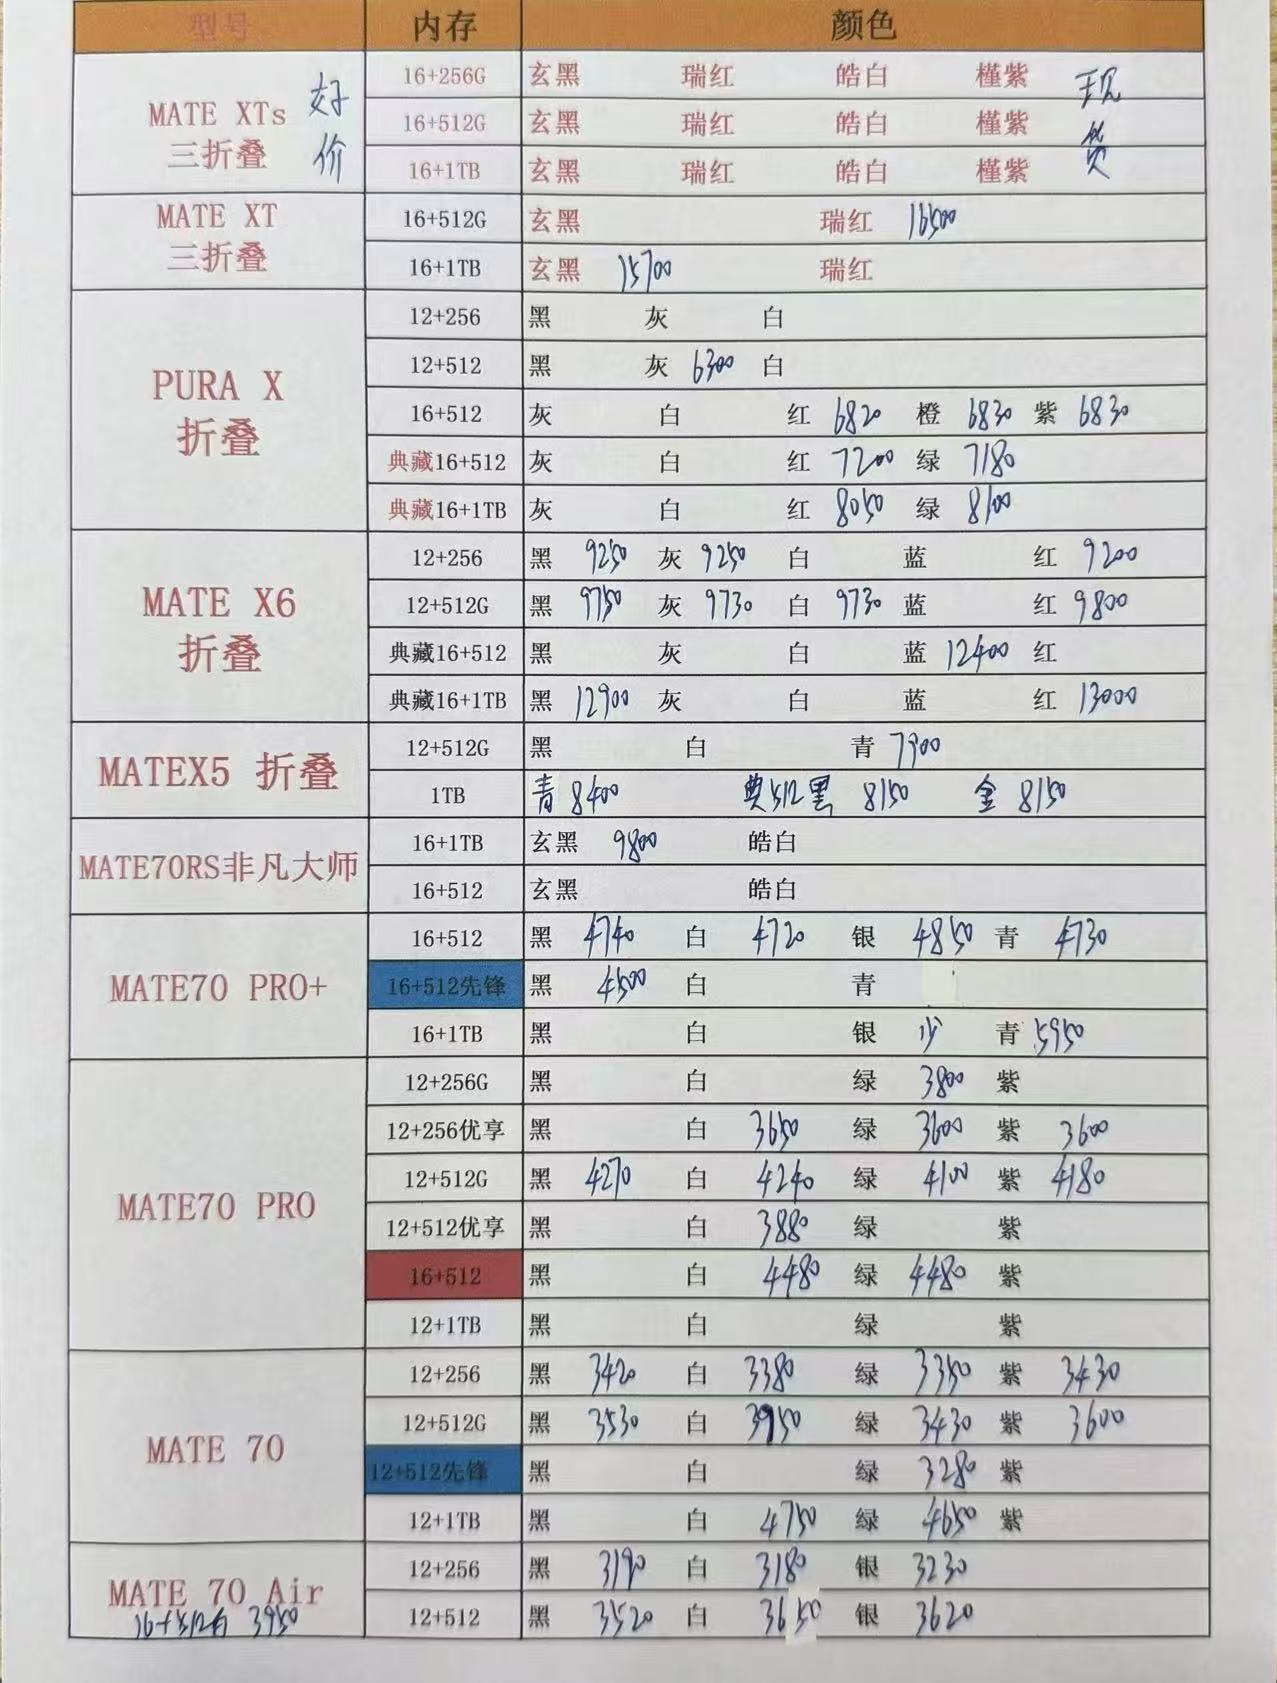 型号 内存 颜色
MATE XTs 三折叠 好价 现货
16+256G 玄黑 瑞红 皓白 槿紫
16+512G 玄黑 瑞红 皓白 槿紫
16+1TB 玄黑 瑞红 皓白 槿紫
MATE XT 三折叠
16+512G 玄黑 瑞红 16500
16+1TB 玄黑 15700 瑞红
PURA X 折叠
12+256 黑 灰 白
12+512 黑 灰 6300 白
16+512 灰 白 红 6820 橙 6830 紫 6830
典藏16+512 灰 白 红 7200 绿 7180
典藏16+1TB 灰 白 红 8050 绿 8100
MATE X6 折叠
12+256 黑 9250 灰 9250 白 蓝 红 9200
12+512G 黑 9750 灰 9730 白 9730 蓝 红 9800
典藏16+512 黑 灰 白 蓝 12400 红
典藏16+1TB 黑 12900 灰 白 蓝 红 13000
MATEX5 折叠
12+512G 黑 白 青 7900
1TB 青 8400 典512黑 8150 金 8150
MATE70RS非凡大师
16+1TB 玄黑 9800 皓白
16+512 玄黑 皓白
MATE70 PRO+
16+512 黑 4740 白 4720 银 4850 青 4730
16+512先锋 黑 4500 白 青
16+1TB 黑 白 银 少 青 5950
MATE70 PRO
12+256G 黑 白 绿 3800 紫
12+256优享 黑 白 3650 绿 3600 紫 3600
12+512G 黑 4270 白 4240 绿 4100 紫 4180
12+512优享 黑 白 3880 绿 紫
16+512 黑 白 4480 绿 4480 紫
12+1TB 黑 白 绿 紫
MATE 70
12+256 黑 3420 白 3380 绿 3350 紫 3430
12+512G 黑 3530 白 3950 绿 3430 紫 3600
12+512先锋 黑 白 绿 3280 紫
12+1TB 黑 白 4750 绿 4650 紫
MATE 70 Air
16+512白 3950
12+256 黑 3190 白 3180 银 3230
12+512 黑 3520 白 3650 银 3620